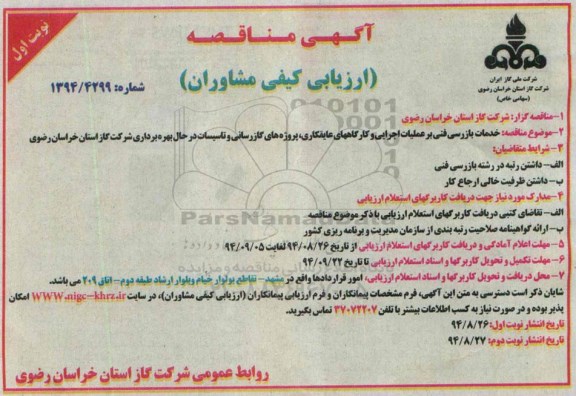 نوبت اول
آگهی مناقصه
(ارزیابی کیفی مشاوران)
شماره: ۱۳۹۴/۴۲۹۹
شرکت ملی گاز ایران
شرکت گاز استان خراسان رضوی
(سهامی خاص)
۱-مناقصه گزار: شرکت گاز استان خراسان رضوی
۲-موضوع مناقصه: خدمات بازرسی فنی بر عملیات اجرایی و کارگاههای عایقکاری، پروژه های گازرسانی و تاسیسات در حال بهره برداری شرکت گاز استان خراسان رضوی
۳- شرایط متقاضیان:
الف- داشتن رتبه در رشته بازرسی فنی
ب- داشتن ظرفیت خالی ارجاع کار
۴-مدارک مورد نیاز جهت دریافت کاربرگهای استعلام ارزیابی
الف- تقاضای کتبی دریافت کاربرگهای استعلام ارزیابی با ذکر موضوع مناقصه
ب- ارائه گواهینامه صلاحیت رتبه بندی از سازمان مدیریت و برنامه ریزی کشور
۵- مهلت اعلام آمادگی و دریافت کاربرگهای استعلام ارزیابی از تاریخ ۹۴/۰۸/۲۶ لغایت ۹۴/۰۹/۰۵
۶- مهلت تکمیل و تحویل کاربرگها و اسناد استعلام ارزیابی تا تاریخ ۹۴/۰۹/۲۲
۷- محل دریافت و تحویل کاربرگها و اسناد استعلام ارزیابی، امور قراردادها واقع در مشهد- تقاطع بولوار خیام وبلوار ارشاد طبقه دوم- اتاق ۲۰۹ می باشد.
شایان ذکر است دسترسی به متن این آگهی، فرم مشخصات پیمانکاران و فرم ارزیابی پیمانکاران (ارزیابی کیفی مشاوران)، در سایت WWW.nigc-khrz.ir امکان
پذیر بوده و در صورت نیاز به کسب اطلاعات بیشتر با تلفن ۳۷۰۷۲۲۰۷ تماس بگیرید.
تاریخ انتشار نوبت اول: ۹۴/۸/۲۶
تاریخ انتشار نوبت دوم: ۹۴/۸/۲۷
روابط عمومی شرکت گاز استان خراسان رضوی